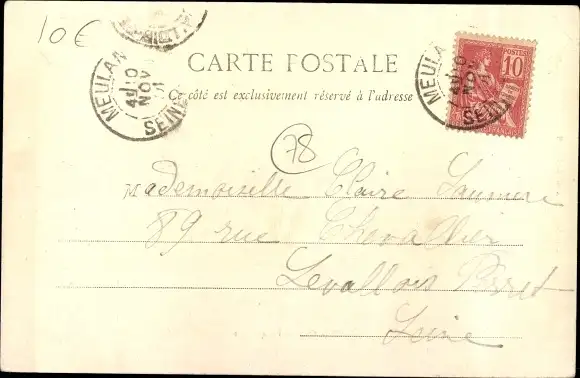 10€
MEULAN
4E 10
NOV
01
SEINE
CARTE POSTALE
Ce côté est exclusivement réservé à l'adresse
MEULAN
10
NOV
01
SEINE
POSTES
10
78
Mademoiselle Claire
89 rue Chevallier
Levallois Perret
Seine